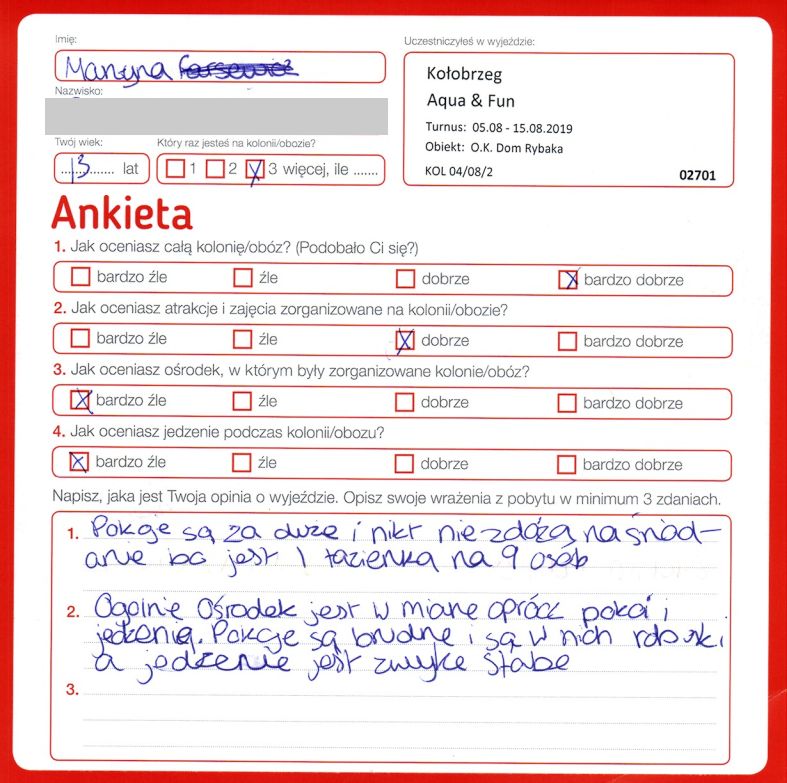 Imię:
Martyna
Nazwisko:
Twój wiek:
13 lat
Który raz jesteś na kolonii/obozie?
1 2 3 więcej, ile .......
Uczestniczyłeś w wyjeździe:
Kołobrzeg
Aqua & Fun
Turnus: 05.08 - 15.08.2019
Obiekt: O.K. Dom Rybaka
KOL 04/08/2 02701
Ankieta
1. Jak oceniasz całą kolonię/obóz? (Podobało Ci się?)
bardzo źle źle dobrze bardzo dobrze
2. Jak oceniasz atrakcje i zajęcia zorganizowane na kolonii/obozie?
bardzo źle źle dobrze bardzo dobrze
3. Jak oceniasz ośrodek, w którym były zorganizowane kolonie/obóz?
bardzo źle źle dobrze bardzo dobrze
4. Jak oceniasz jedzenie podczas kolonii/obozu?
bardzo źle źle dobrze bardzo dobrze
Napisz, jaka jest Twoja opinia o wyjeździe. Opisz swoje wrażenia z pobytu w minimum 3 zdaniach.
1. Pokoje są za duże i nikt nie zdążą na śniad-
anie bo jest 1 łazienka na 9 osób
2. Ogólnie Ośrodek jest w miarę oprócz pokoi i
jedzenia. Pokoje są brudne i są w nich robaki
a jedzenie jest zwykle słabe
3.